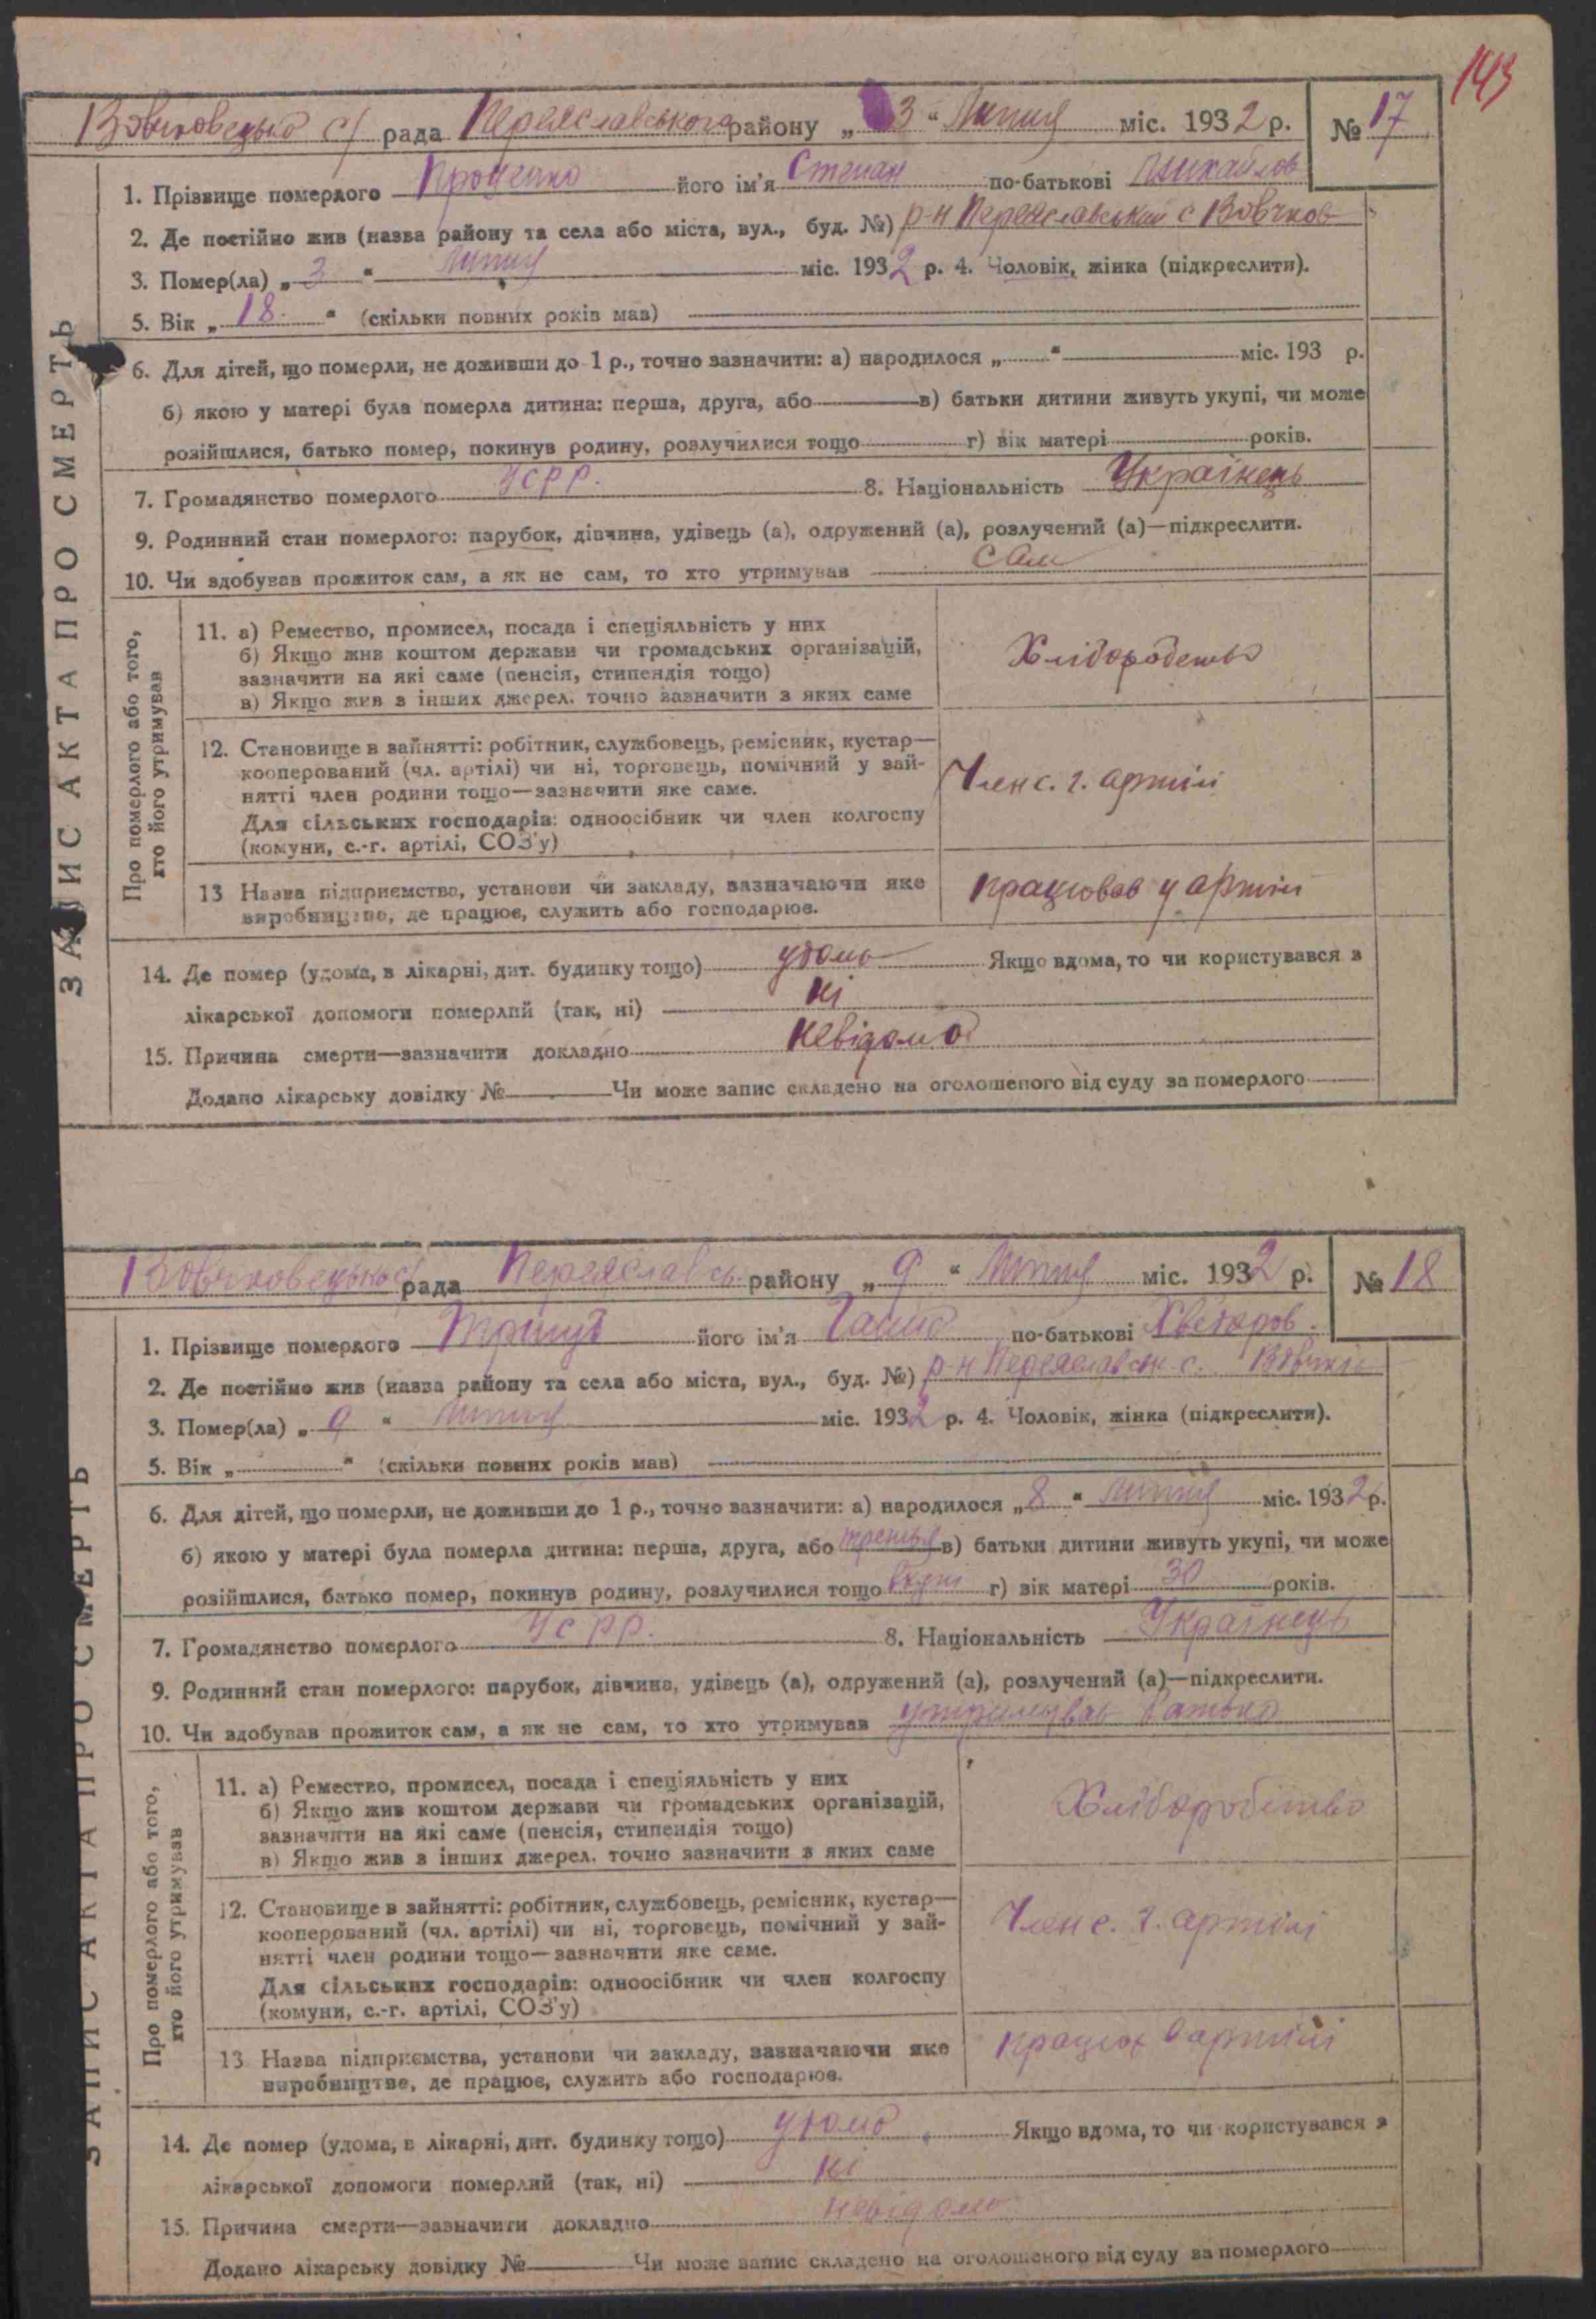 143
Вовчковецька с/ рада Переяславського району „ 3 “ Липня міс. 1932 р. № 17
1. Прізвище померлого Проценко його ім'я Степан по-батькові Михайлов
2. Де постійно жив (назва району та села або міста, вул., буд. №) р-н Переяславський с Вовчков
3. Помер(ла) „ 3 “ Липня міс. 1932 р. 4. Чоловік, жінка (підкреслити).
5. Вік „ 18 “ (скільки повних років мав)
6. Для дітей, що померли, не доживши до 1 р., точно зазначити: а) народилося „ “ міс. 193 р.
б) якою у матері була померла дитина: перша, друга, або в) батьки дитини живуть укупі, чи може
розійшлися, батько помер, покинув родину, розлучилися тощо г) вік матері років.
7. Громадянство померлого УСРР. 8. Національність Українець
9. Родинний стан померлого: парубок, дівчина, удівець (а), одружений (а), розлучений (а)—підкреслити.
10. Чи здобував прожиток сам, а як не сам, то хто утримував сам
Про померлого або того,
хто його утримував
11. а) Ремество, промисел, посада і спеціяльність у них
б) Якщо жив коштом держави чи громадських організацій,
зазначити на які саме (пенсія, стипендія тощо)
в) Якщо жив з інших джерел. точно зазначити з яких саме
12. Становище в зайнятті: робітник, службовець, ремісник, кустар—
кооперований (чл. артілі) чи ні, торговець, помічний у зай-
нятті член родини тощо—зазначити яке саме.
Для сільських господарів: одноосібник чи член колгоспу
(комуни, с.-г. артілі, СОЗ'у)
Член с. г. артілі
13 Назва підприємства, установи чи закладу, зазначаючи яке
виробництво, де працює, служить або господарює.
працював у артілі
14. Де помер (удома, в лікарні, дит. будинку тощо) удома Якщо вдома, то чи користувався з
лікарської допомоги померлий (так, ні) ні
15. Причина смерти—зазначити докладно невідома
Додано лікарську довідку № Чи може запис складено на оголошеного від суду за померлого
ЗАПИС АКТА ПРО СМЕРТЬ
Вовчковецька с/ рада Переяславсь. району „ 9 “ Липня міс. 1932 р. № 18
1. Прізвище померлого його ім'я Ганна по-батькові Хведоров.
2. Де постійно жив (назва району та села або міста, вул., буд. №) р-н Переяславськ. с. Вовчків
3. Помер(ла) „ 9 “ Липня міс. 1932 р. 4. Чоловік, жінка (підкреслити).
5. Вік „ “ (скільки повних років мав)
6. Для дітей, що померли, не доживши до 1 р., точно зазначити: а) народилося „ 8 “ Липня міс. 1932 р.
б) якою у матері була померла дитина: перша, друга, або третья в) батьки дитини живуть укупі, чи може
розійшлися, батько помер, покинув родину, розлучилися тощо вкупі г) вік матері 30 років.
7. Громадянство померлого УСРР. 8. Національність Українець
9. Родинний стан померлого: парубок, дівчина, удівець (а), одружений (а), розлучений (а)—підкреслити.
10. Чи здобував прожиток сам, а як не сам, то хто утримував утримував батько
Про померлого або того,
хто його утримував
11. а) Ремество, промисел, посада і спеціяльність у них
б) Якщо жив коштом держави чи громадських організацій,
зазначити на які саме (пенсія, стипендія тощо)
в) Якщо жив з інших джерел. точно зазначити з яких саме
Хліборобство
12. Становище в зайнятті: робітник, службовець, ремісник, кустар—
кооперований (чл. артілі) чи ні, торговець, помічний у зай-
нятті член родини тощо—зазначити яке саме.
Для сільських господарів: одноосібник чи член колгоспу
(комуни, с.-г. артілі, СОЗ'у)
Член с. г. артілі
13 Назва підприємства, установи чи закладу, зазначаючи яке
виробництво, де працює, служить або господарює.
працює в артілі
14. Де помер (удома, в лікарні, дит. будинку тощо) удома Якщо вдома, то чи користувався з
лікарської допомоги померлий (так, ні) ні
15. Причина смерти—зазначити докладно невідомо
Додано лікарську довідку № Чи може запис складено на оголошеного від суду за померлого
ЗАПИС АКТА ПРО СМЕРТЬ